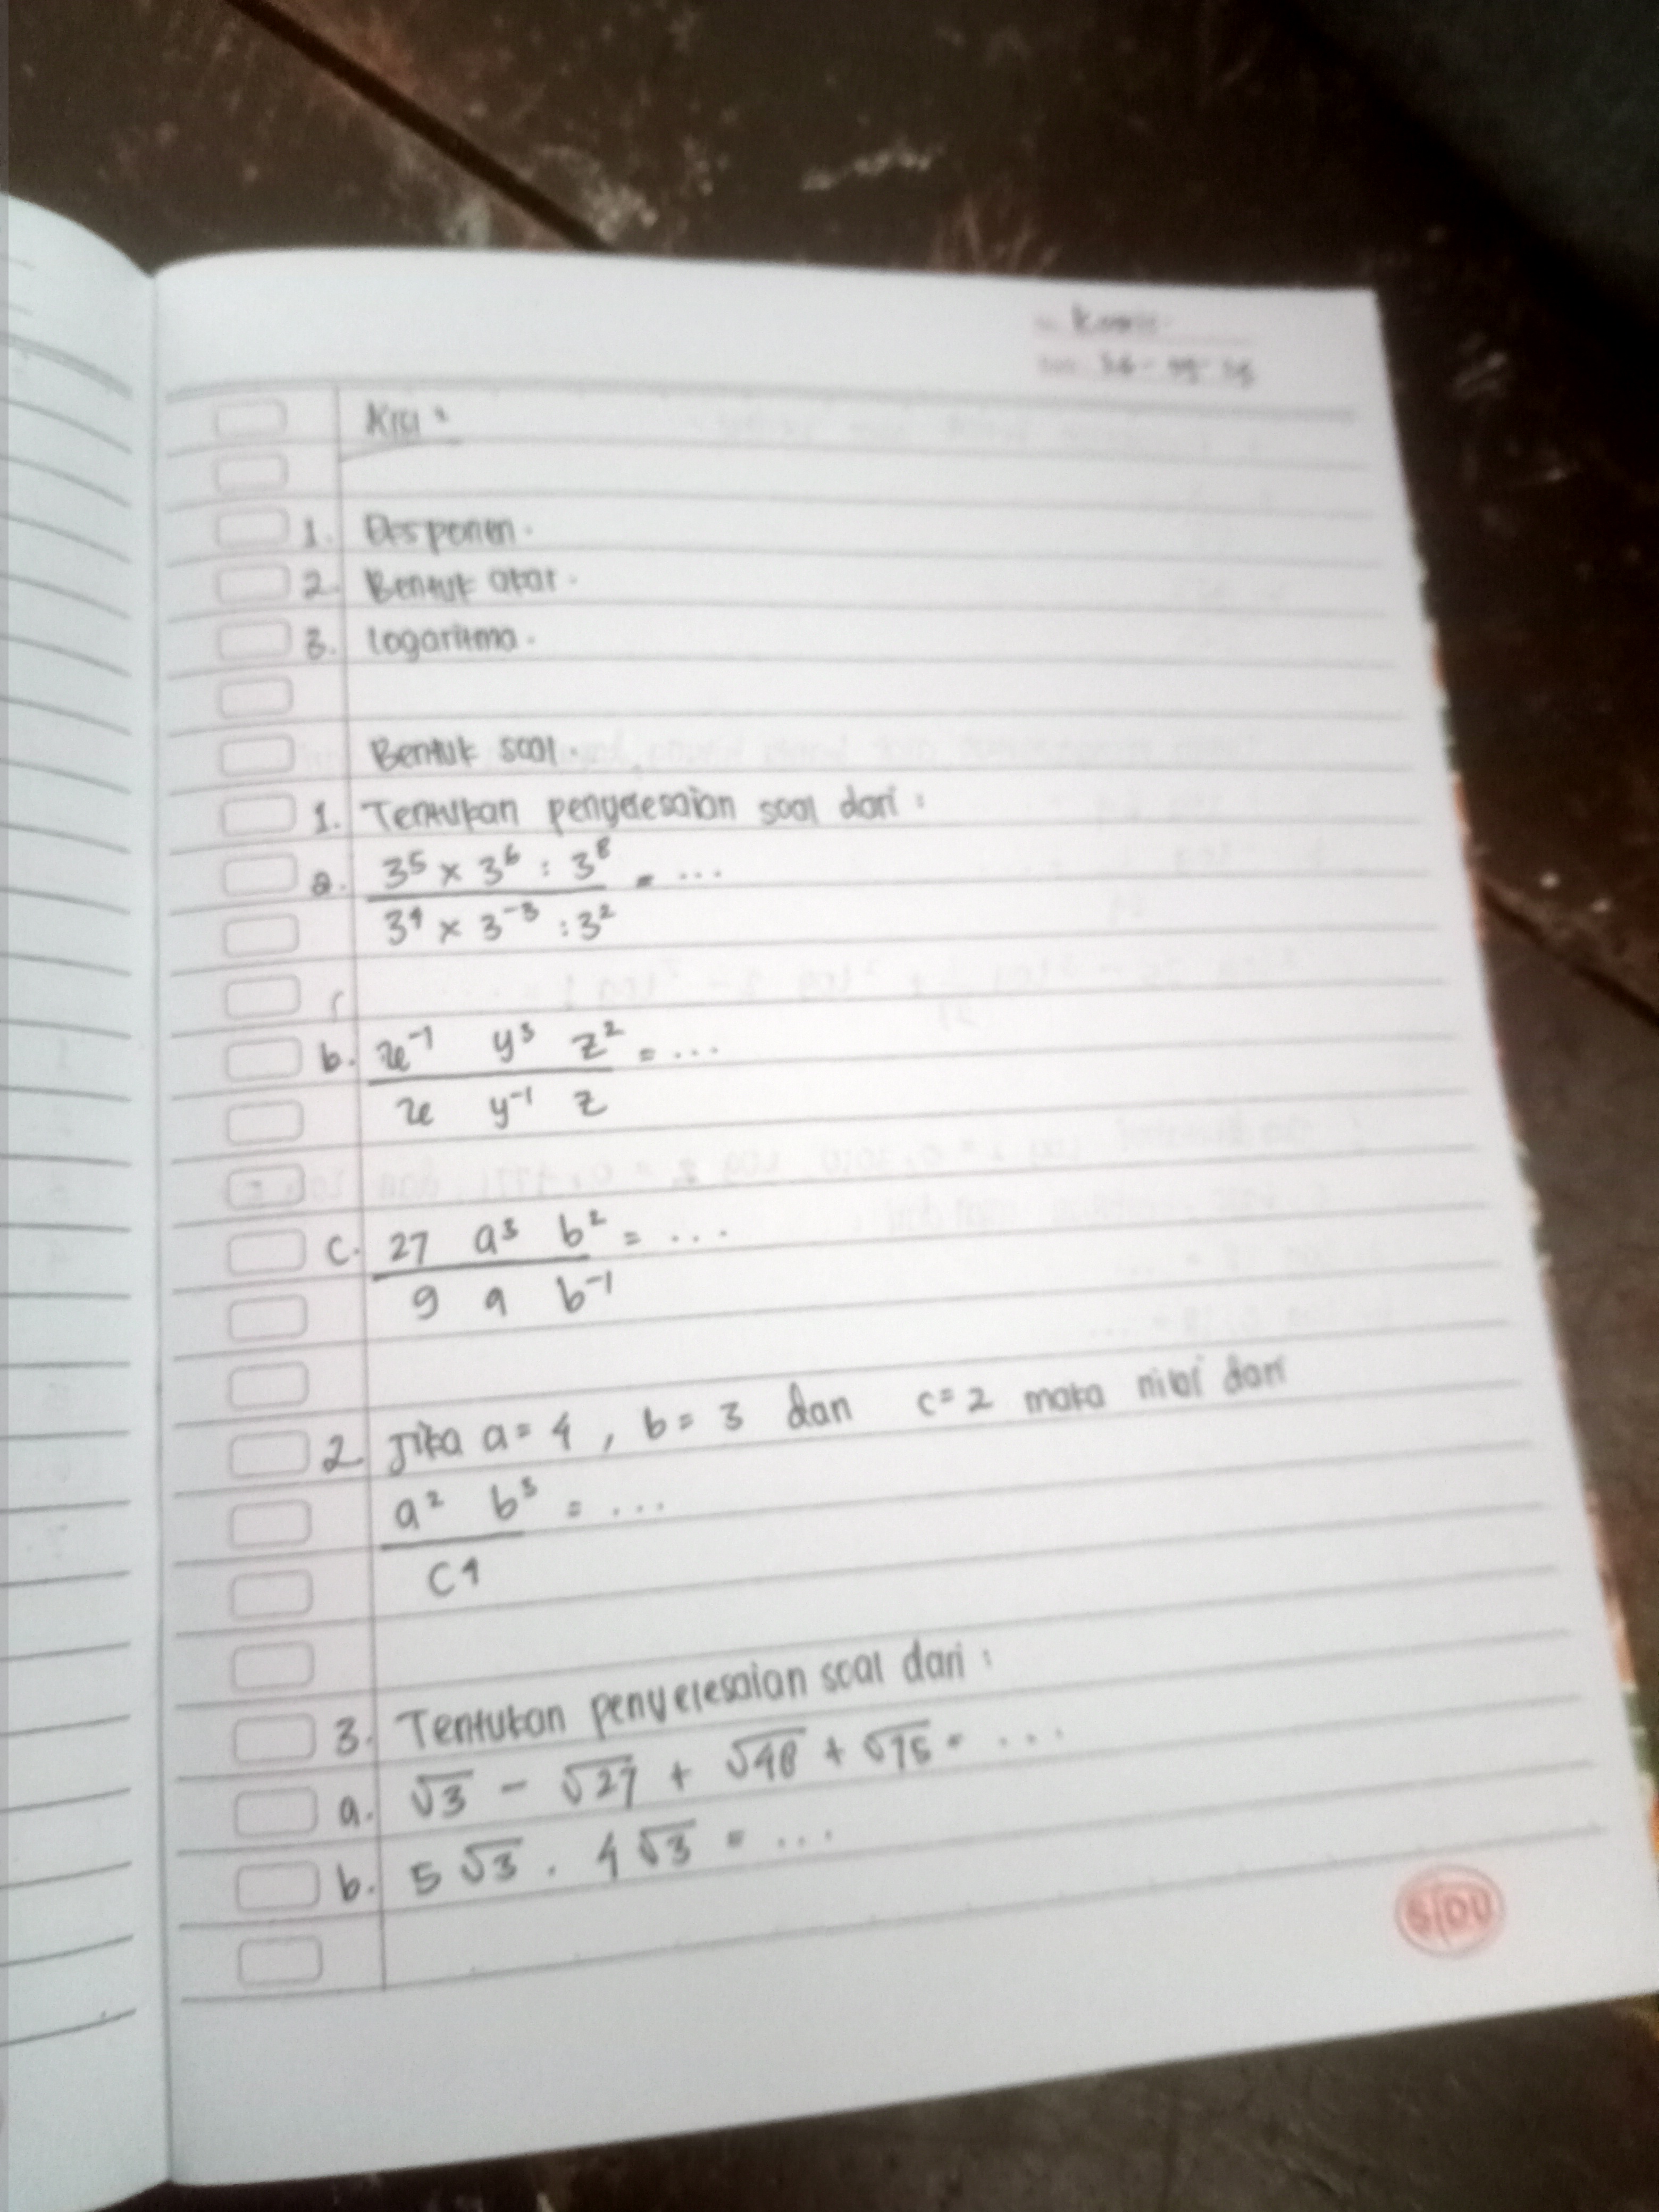 Kamis
Kisi :
1. Eksponen.
2. Bentuk akar.
3. Logaritma.
Bentuk soal.
1. Tentukan penyelesaian soal dari :
a. 3⁵ × 3⁶ : 3⁸ = ...
3⁴ × 3⁻³ : 3²
b. x⁻¹ y³ z² = ...
x y⁻¹ z
c. 27 a³ b² = ...
9 a b⁻¹
2. Jika a = 4 , b = 3 dan c = 2 maka nilai dari
a² b³ = ...
c⁴
3. Tentukan penyelesaian soal dari :
a. √3 - √27 + √48 + √75 = ...
b. 5 √3 . 4 √3 = ...
SIDU